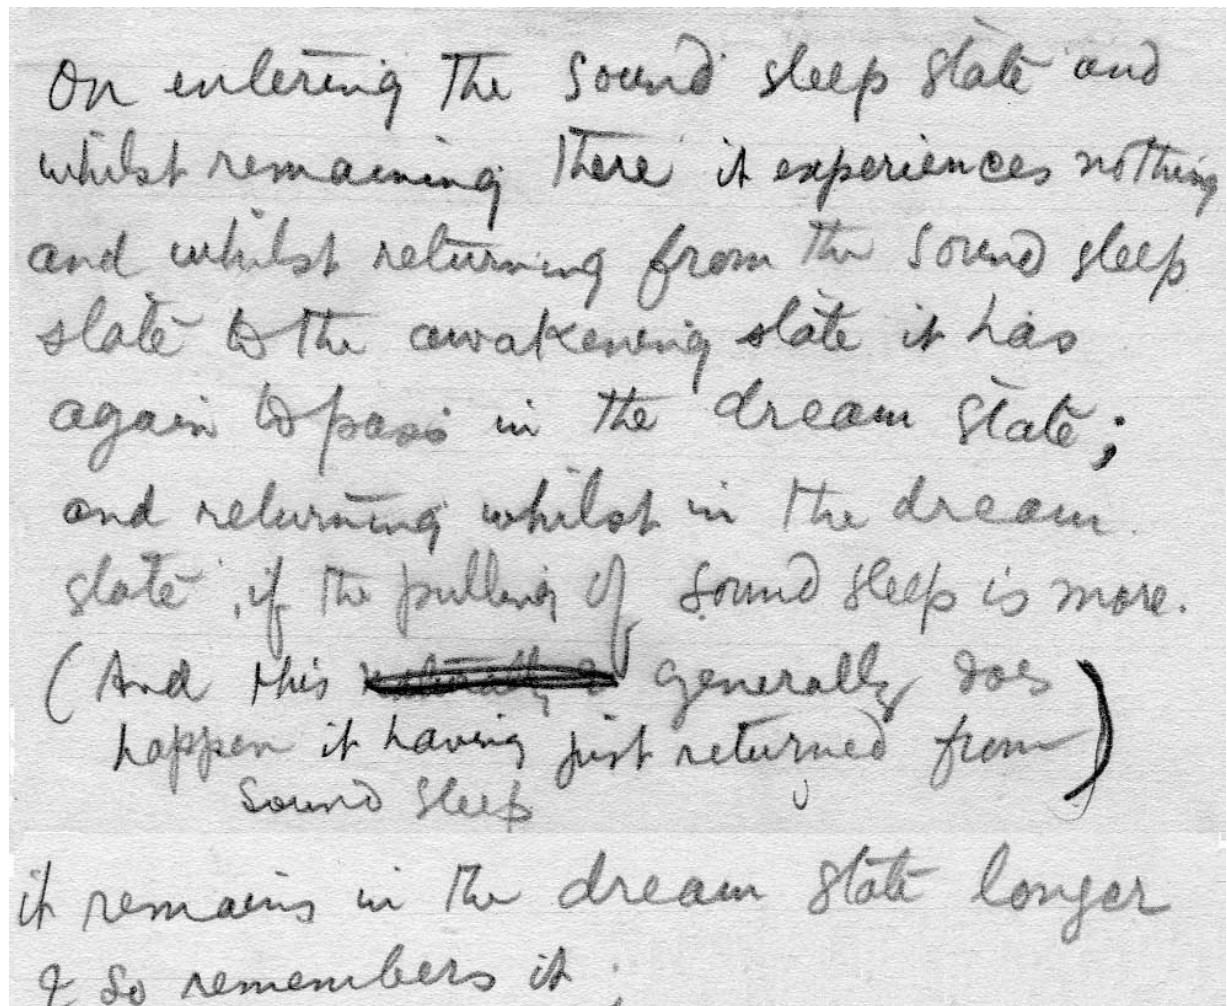 On entering the sound sleep state and
whilst remaining there it experiences nothing
and whilst returning from the sound sleep
state to the awakening state it has
again to pass in the dream state;
and returning whilst in the dream
state, if the pulling of sound sleep is more.
(And this generally does
happen it having just returned from)
sound sleep
it remains in the dream state longer
& so remembers it;